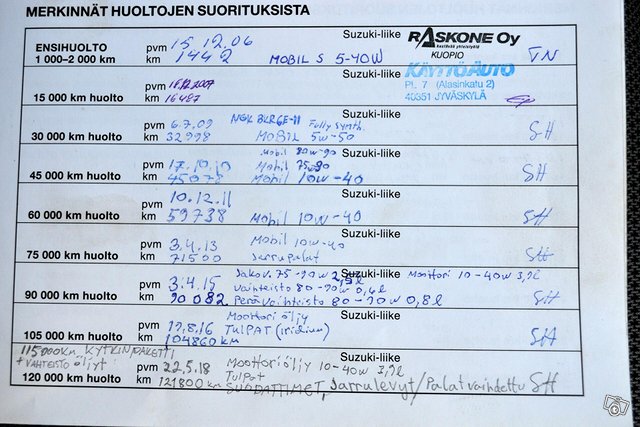 MERKINNÄT HUOLTOJEN SUORITUKSISTA
ENSIHUOLTO
1 000–2 000 km
pvm 15.12.06
km 1442
MOBIL S 5-40W
Suzuki-liike
RASKONE Oy
KUOPIO
15 000 km huolto
pvm
km 16487
Suzuki-liike
KÄYTTÖAUTO
PL 7 (Alasinkatu 2)
40351 JYVÄSKYLÄ
30 000 km huolto
pvm 6.7.09
km 32998
NGK BKR6E-11 Fully Synth.
MOBIL 5W-50
Suzuki-liike
SH
45 000 km huolto
pvm 17.10.10
km 45078
Mobil 80W-90
Mobil 75-90
Mobil 10W-40
Suzuki-liike
SH
60 000 km huolto
pvm 10.12.11
km 59738
Mobil 10W-40
Suzuki-liike
SH
75 000 km huolto
pvm 3.4.13
km 71500
Mobil 10W-40
Jarrupalat
Suzuki-liike
SH
90 000 km huolto
pvm 3.4.15
km 90082
Jakov. 75-90W
Vaihteisto 80-90W
Perävaihteisto 80-90W 0,8l
Suzuki-liike
Moottori 10-40W 3,9l
SH
105 000 km huolto
pvm
km 104860km
Moottori öljy
TulPAT (iridium)
Suzuki-liike
SH
115000KM, KYTKINPAKETTI
+ VAIHTEISTO öljyt
120 000 km huolto
pvm 22.5.18
km 121800 km
Moottoriöljy 10-40W 3,9l
Tulpat
SUODATTIMET, Jarrulevyt/Palat vaihdettu
Suzuki-liike
SH